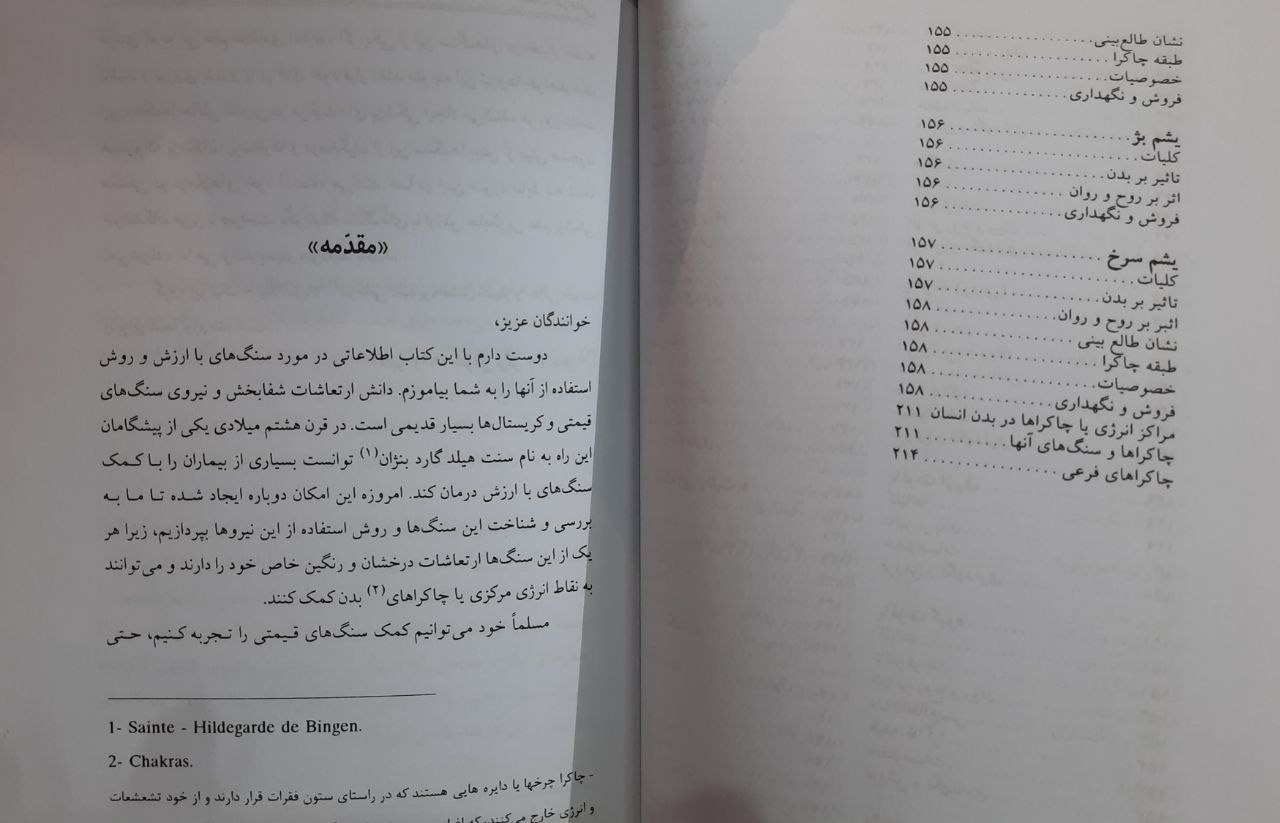 نشان طالع‌بینی ........ ۱۵۵
طبقه چاکرا ........ ۱۵۵
خصوصیات ........ ۱۵۵
فروش و نگهداری ........ ۱۵۵
یشم بژ ........ ۱۵۶
کلیات ........ ۱۵۶
تاثیر بر بدن ........ ۱۵۶
اثر بر روح و روان ........ ۱۵۶
فروش و نگهداری ........ ۱۵۶
یشم سرخ ........ ۱۵۷
کلیات ........ ۱۵۷
تاثیر بر بدن ........ ۱۵۷
اثبر بر روح و روان ........ ۱۵۸
نشان طالع بینی ........ ۱۵۸
طبقه چاکرا ........ ۱۵۸
خصوصیات ........ ۱۵۸
فروش و نگهداری ........ ۱۵۸
مراکز انرژی یا چاکراها در بدن انسان ۲۱۱
چاکراها و سنگ‌های آنها ........ ۲۱۱
چاکراهای فرعی ........ ۲۱۴
«مقدّمه»
خوانندگان عزیز،
دوست دارم با این کتاب اطلاعاتی در مورد سنگ‌های با ارزش و روش
استفاده از آنها را به شما بیاموزم. دانش ارتعاشات شفابخش و نیروی سنگ‌های
قیمتی و کریستال‌ها بسیار قدیمی است. در قرن هشتم میلادی یکی از پیشگامان
این راه به نام سنت هیلد گارد بنژان(۱) توانست بسیاری از بیماران را با کمک
سنگ‌های با ارزش درمان کند. امروزه این امکان دوباره ایجاد شده تا ما به
بررسی و شناخت این سنگ‌ها و روش استفاده از این نیروها بپردازیم، زیرا هر
یک از این سنگ‌ها ارتعاشات درخشان و رنگین خاص خود را دارند و می‌توانند
به نقاط انرژی مرکزی یا چاکراهای(۲) بدن کمک کنند.
مسلماً خود می‌توانیم کمک سنگ‌های قیمتی را تجربه کنیم، حتی
1- Sainte - Hildegarde de Bingen.
2- Chakras.
- چاکرا چرخها یا دایره هایی هستند که در راستای ستون فقرات قرار دارند و از خود تشعشعات
و انرژی خارج می‌کنند، که